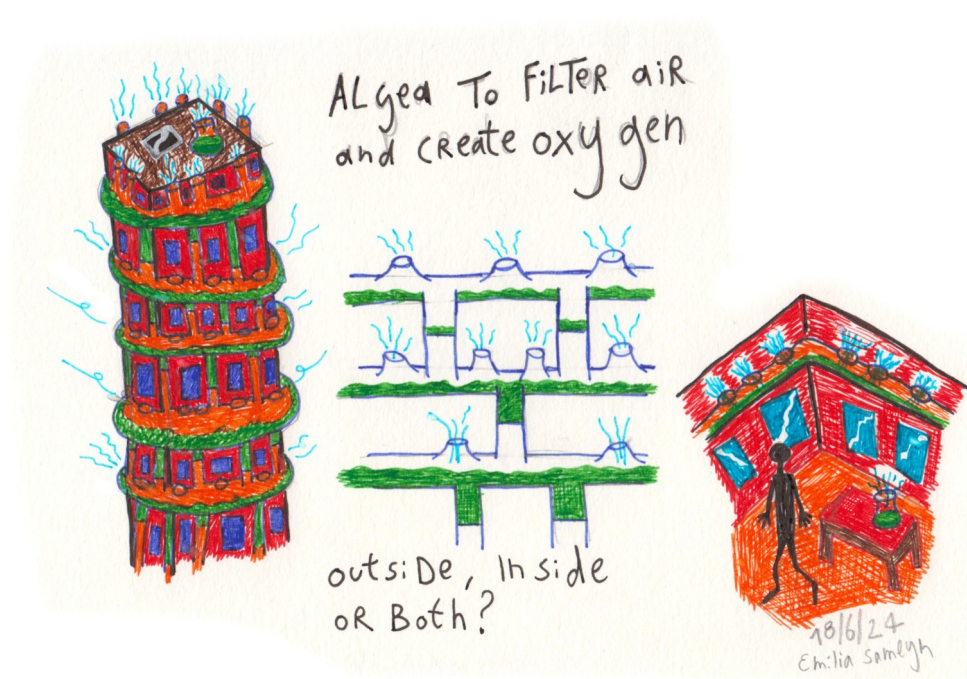 ALgea To FiLTER aiR
and CReate oxygen
outsiDe, Inside
oR Both?
18/6/24
Emilia Sameyn